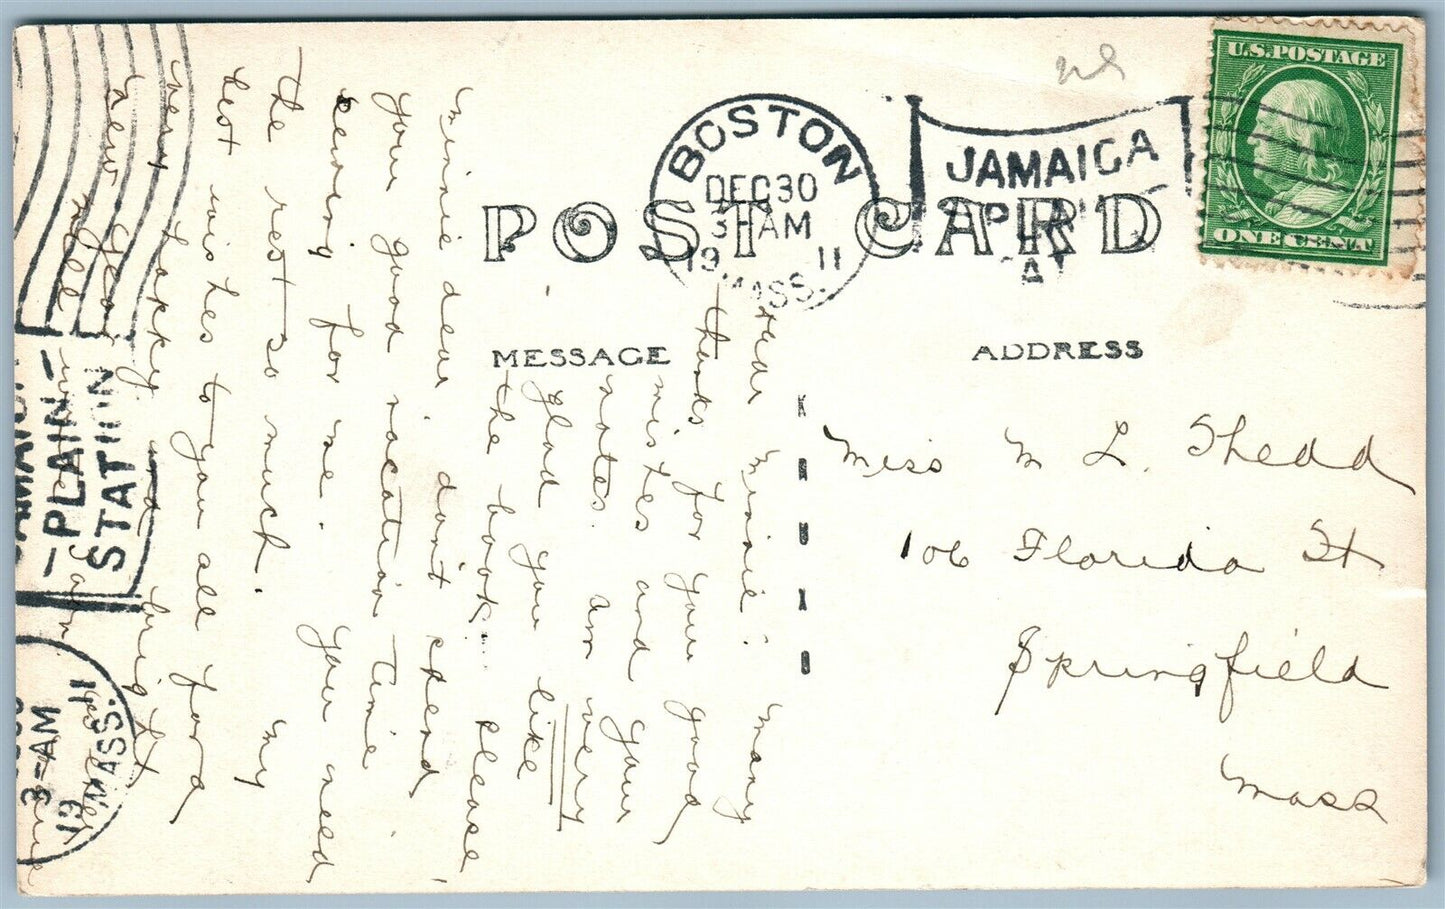 ns
U.S. POSTAGE
ONE CENT
BOSTON
DEC 30
3-AM
1911
MASS.
JAMAICA
POST CARD
MESSAGE
ADDRESS
Dear Minnie: Many
thanks for your good
wishes and your
notes. am very
glad you like
the book. Please
Minnie dear, don't spend
your good vacation time
sewing for me. You need
the rest so much. My
best wishes to you all for a
very happy and bright
New Year
Miss M L. Shedd
106 Florida St
Springfield
Mass
PLAIN
STATION
3-AM
1911
MASS.